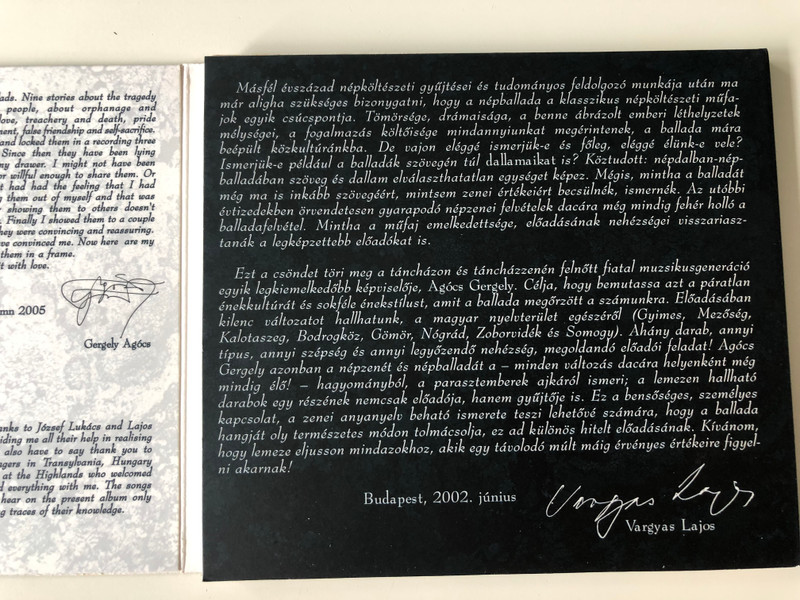 ads. Nine stories about the tragedy
people, about orphanage and
love, treachery and death, pride
ment, false friendship and self-sacrifice.
and locked them in a recording three
Since then they have been lying
my drawer. I might not have been
or willful enough to share them. Or
t had had the feeling that I had
them out of myself and that was
showing them to others doesn't
Finally I showed them to a couple
they were convincing and reassuring.
ve convinced me. Now here are my
them in a frame.
t with love.
mn 2005
Gergely Agócs
anks to József Lukács and Lajos
iding me all their help in realising
also have to say thank you to
gers in Transylvania, Hungary
at the Highlands who welcomed
d everything with me. The songs
hear on the present album only
g traces of their knowledge.
Másfél évszázad népköltészeti gyűjtései és tudományos feldolgozó munkája után ma
már aligha szükséges bizonygatni, hogy a népballada a klasszikus népköltészeti műfa-
jok egyik csúcspontja. Tömörsége, drámaisága, a benne ábrázolt emberi léthelyzetek
mélységei, a fogalmazás költőisége mindannyiunkat megérintenek, a ballada mára
beépült közkultúránkba. De vajon eléggé ismerjük-e és főleg, eléggé élünk-e vele?
Ismerjük-e például a balladák szövegén túl dallamaikat is? Köztudott: népdalban-nép-
balladában szöveg és dallam elválaszthatatlan egységet képez. Mégis, mintha a balladát
még ma is inkább szövegéért, mintsem zenei értékeiért becsülnék, ismernék. Az utóbbi
évtizedekben örvendetesen gyarapodó népzenei felvételek dacára még mindig fehér holló a
balladafelvétel. Mintha a műfaj emelkedettsége, előadásának nehézségei visszariasz-
tanák a legképzettebb előadókat is.
Ezt a csöndet töri meg a táncházon és táncházzenén felnőtt fiatal muzsikusgeneráció
egyik legkiemelkedőbb képviselője, Agócs Gergely. Célja, hogy bemutassa azt a páratlan
énekkultúrát és sokféle énekstílust, amit a ballada megőrzött a számunkra. Előadásában
kilenc változatot hallhatunk, a magyar nyelvterület egészéről (Gyimes, Mezőség,
Kalotaszeg, Bodrogköz, Gömör, Nógrád, Zoborvidék és Somogy). Ahány darab, annyi
típus, annyi szépség és annyi legyőzendő nehézség, megoldandó előadói feladat! Agócs
Gergely azonban a népzenét és népballadát a – minden változás dacára helyenként még
mindig élő! – hagyományból, a parasztemberek ajkáról ismeri; a lemezen hallható
darabok egy részének nemcsak előadója, hanem gyűjtője is. Ez a bensőséges, személyes
kapcsolat, a zenei anyanyelv beható ismerete teszi lehetővé számára, hogy a ballada
hangját oly természetes módon tolmácsolja, ez ad különös hitelt előadásának. Kívánom,
hogy lemeze eljusson mindazokhoz, akik egy távolodó múlt máig érvényes értékeire figyel-
ni akarnak!
Budapest, 2002. június
Vargyas Lajos
Vargyas Lajos